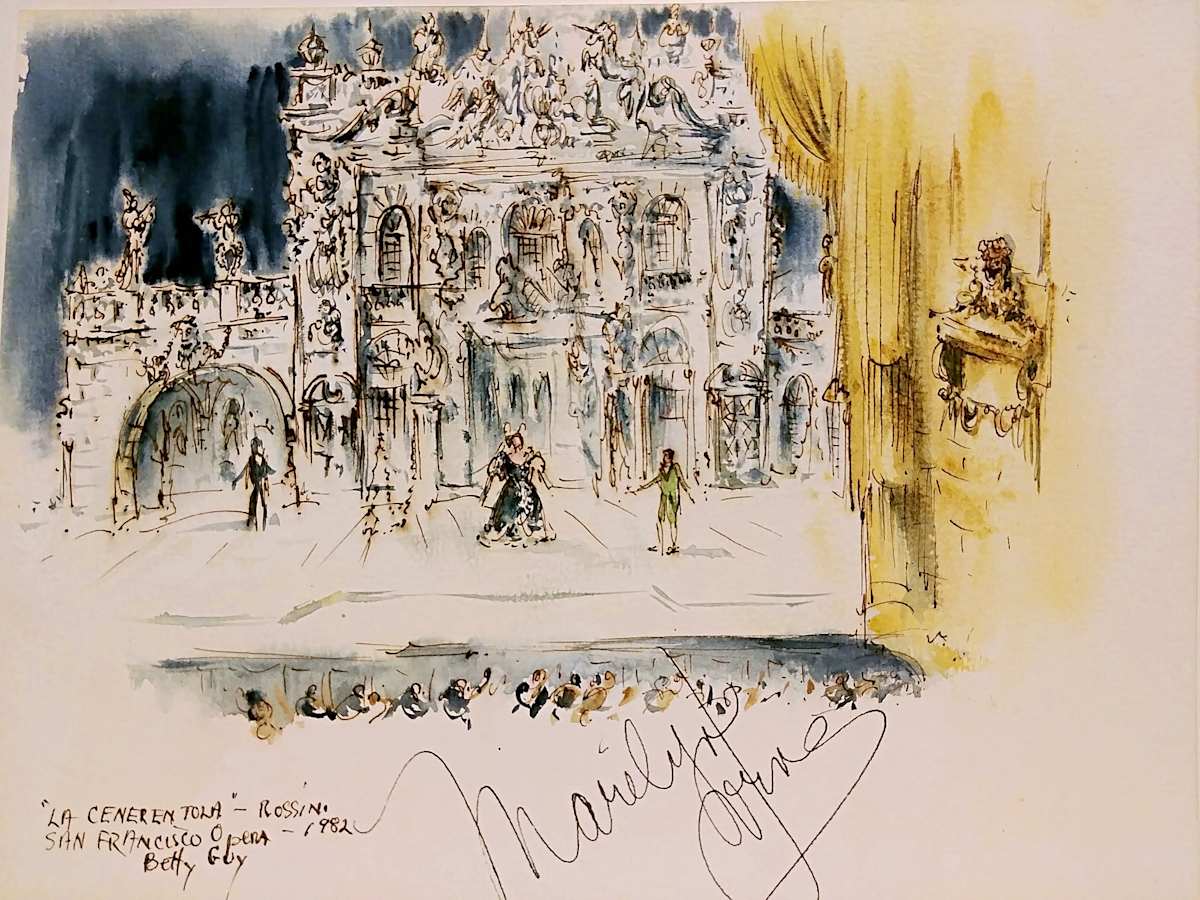 "LA CENERENTOLA" - ROSSINI
SAN FRANCISCO OPERA - 1982
Betty Guy
Marilyn
Horne